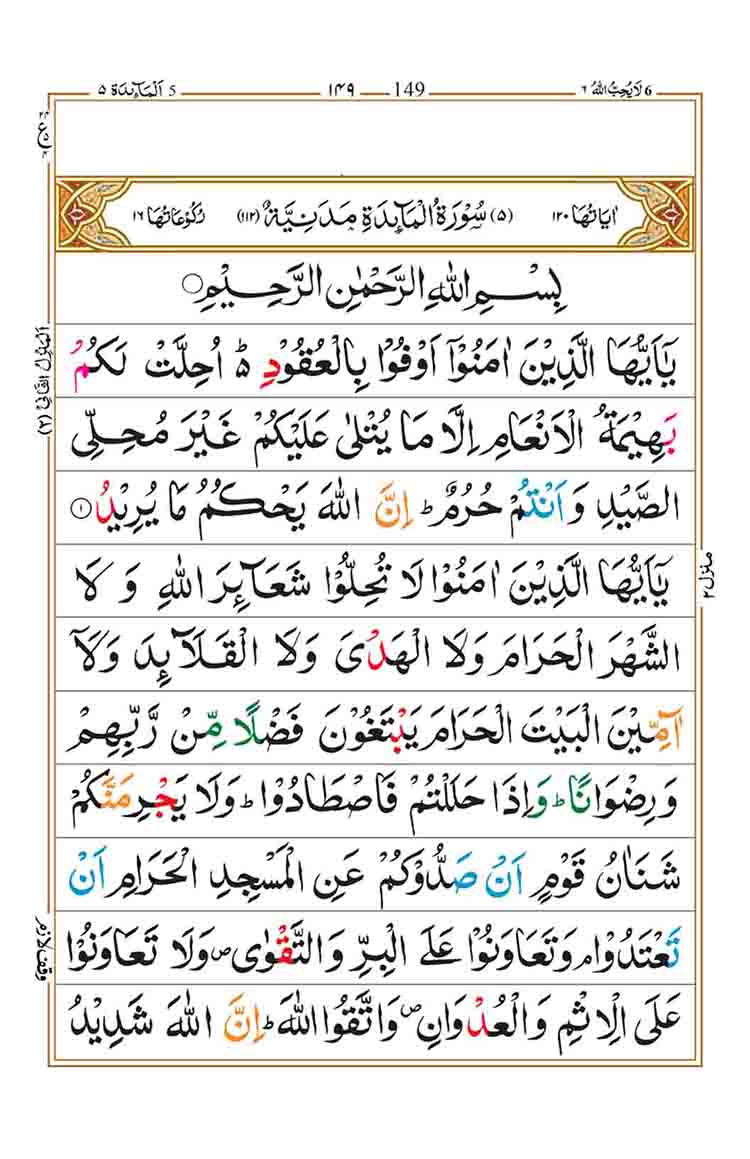 6 لَا يُحِبُّ اللّٰهُ ٦
149 ١٤٩
5 اَلْمَآئِدَة ٥
اٰيَاتُهَا ١٢٠ (٥) سُوْرَةُ الْمَآئِدَةِ مَدَنِيَّةٌ (١١٢) رُكُوْعَاتُهَا ١٦
بِسْمِ اللّٰهِ الرَّحْمٰنِ الرَّحِيْمِ ○
يٰۤاَيُّهَا الَّذِيْنَ اٰمَنُوْۤا اَوْفُوْا بِالْعُقُوْدِ ؕ۬ اُحِلَّتْ لَكُمْ
بَهِيْمَةُ الْاَنْعَامِ اِلَّا مَا يُتْلٰى عَلَيْكُمْ غَيْرَ مُحِلِّى
الصَّيْدِ وَاَنْتُمْ حُرُمٌ ؕ اِنَّ اللّٰهَ يَحْكُمُ مَا يُرِيْدُ ۝١
يٰۤاَيُّهَا الَّذِيْنَ اٰمَنُوْا لَا تُحِلُّوْا شَعَآئِرَ اللّٰهِ وَلَا
الشَّهْرَ الْحَرَامَ وَلَا الْهَدْىَ وَلَا الْقَلَآئِدَ وَلَاۤ
آمِّيْنَ الْبَيْتَ الْحَرَامَ يَبْتَغُوْنَ فَضْلًا مِّنْ رَّبِّهِمْ
وَرِضْوَانًا ؕ وَاِذَا حَلَلْتُمْ فَاصْطَادُوْا ؕ وَلَا يَجْرِمَنَّكُمْ
شَنَاٰنُ قَوْمٍ اَنْ صَدُّوْكُمْ عَنِ الْمَسْجِدِ الْحَرَامِ اَنْ
تَعْتَدُوْا ۘ وَتَعَاوَنُوْا عَلَى الْبِرِّ وَالتَّقْوٰى ۪ وَلَا تَعَاوَنُوْا
عَلَى الْاِثْمِ وَالْعُدْوَانِ ۪ وَاتَّقُوا اللّٰهَ ؕ اِنَّ اللّٰهَ شَدِيْدُ
اَلْمَنْزِلُ الثَّانِيْ (٢)
منزل ٢
وقف لازم